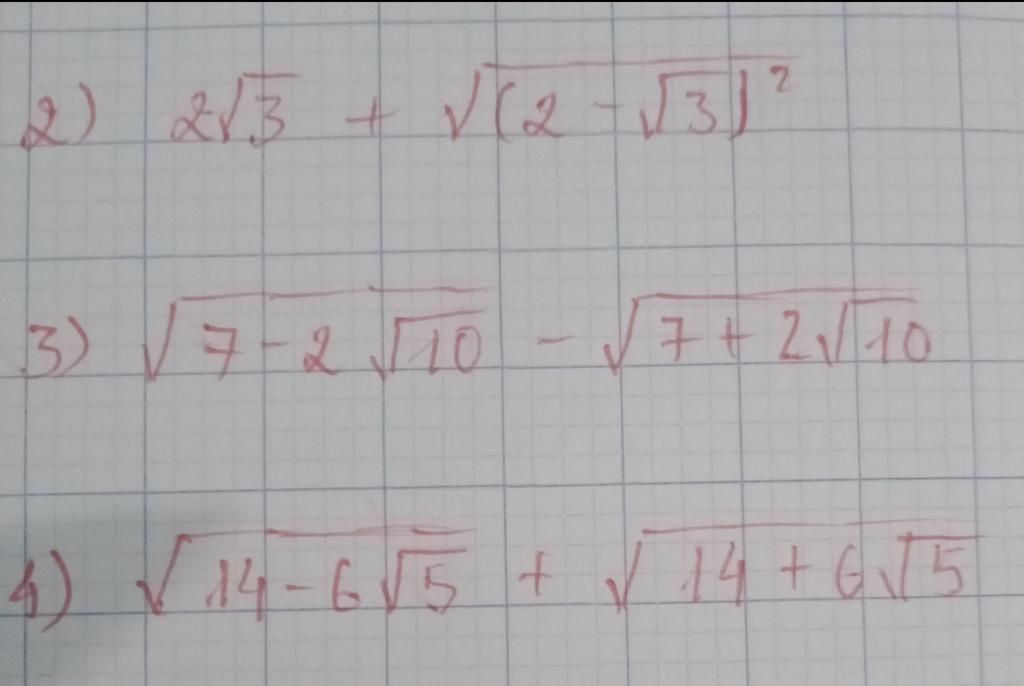 2) 2√3 + √(2 - √3)²
3) √7 - 2√10 - √7 + 2√10
4) √14 - 6√5 + √14 + 6√5